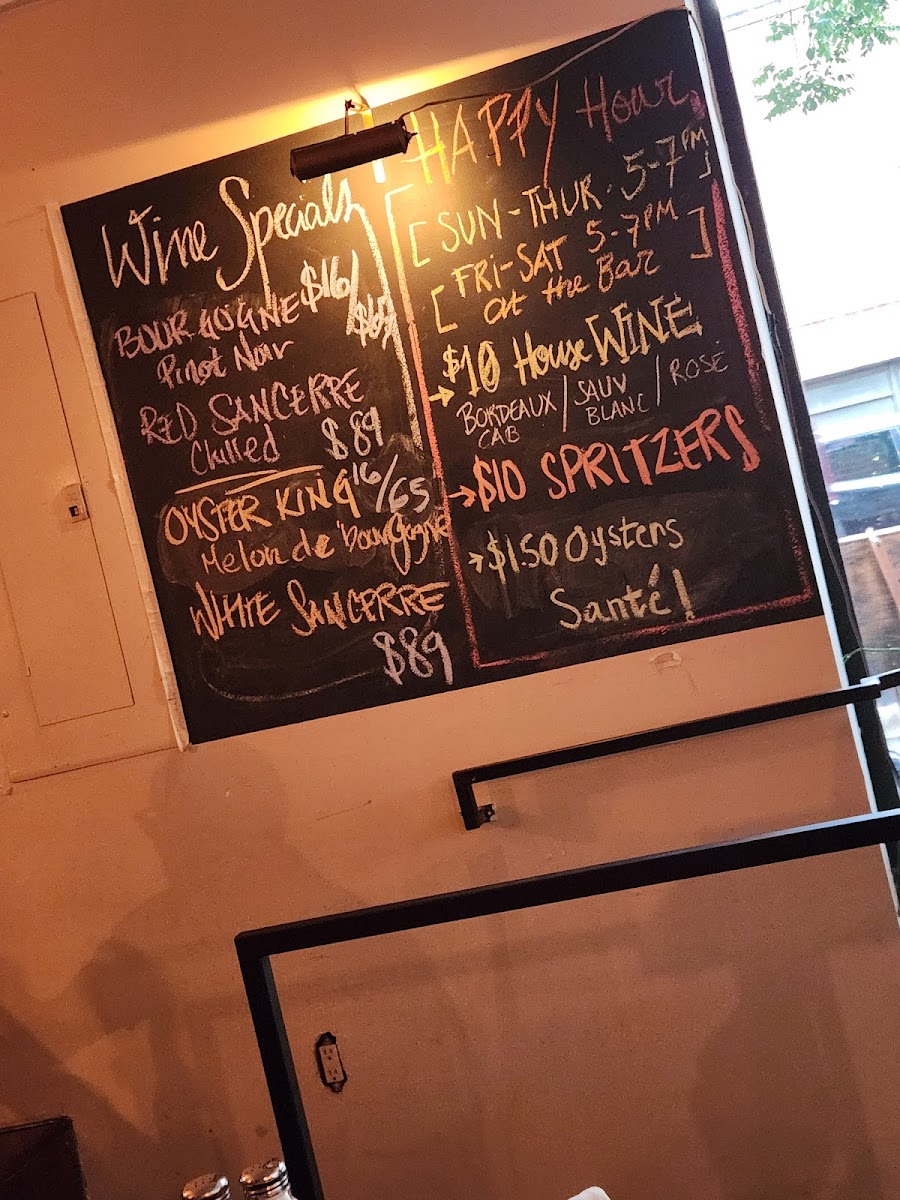 Wine Specials
BOURGOGNE $16/
Pinot Noir
RED SANCERRE
Chilled $89
OYSTER KING 16/65
Melon de Bourgogne
WHITE SANCERRE
$89
HAPPY Hour
[SUN-THUR. 5-7PM]
[FRI-SAT 5-7PM]
at the Bar
$10 House WINE
BORDEAUX / SAUV / ROSÉ
CAB BLANC
→ $10 SPRITZERS
→ $1.50 Oysters
Santé!